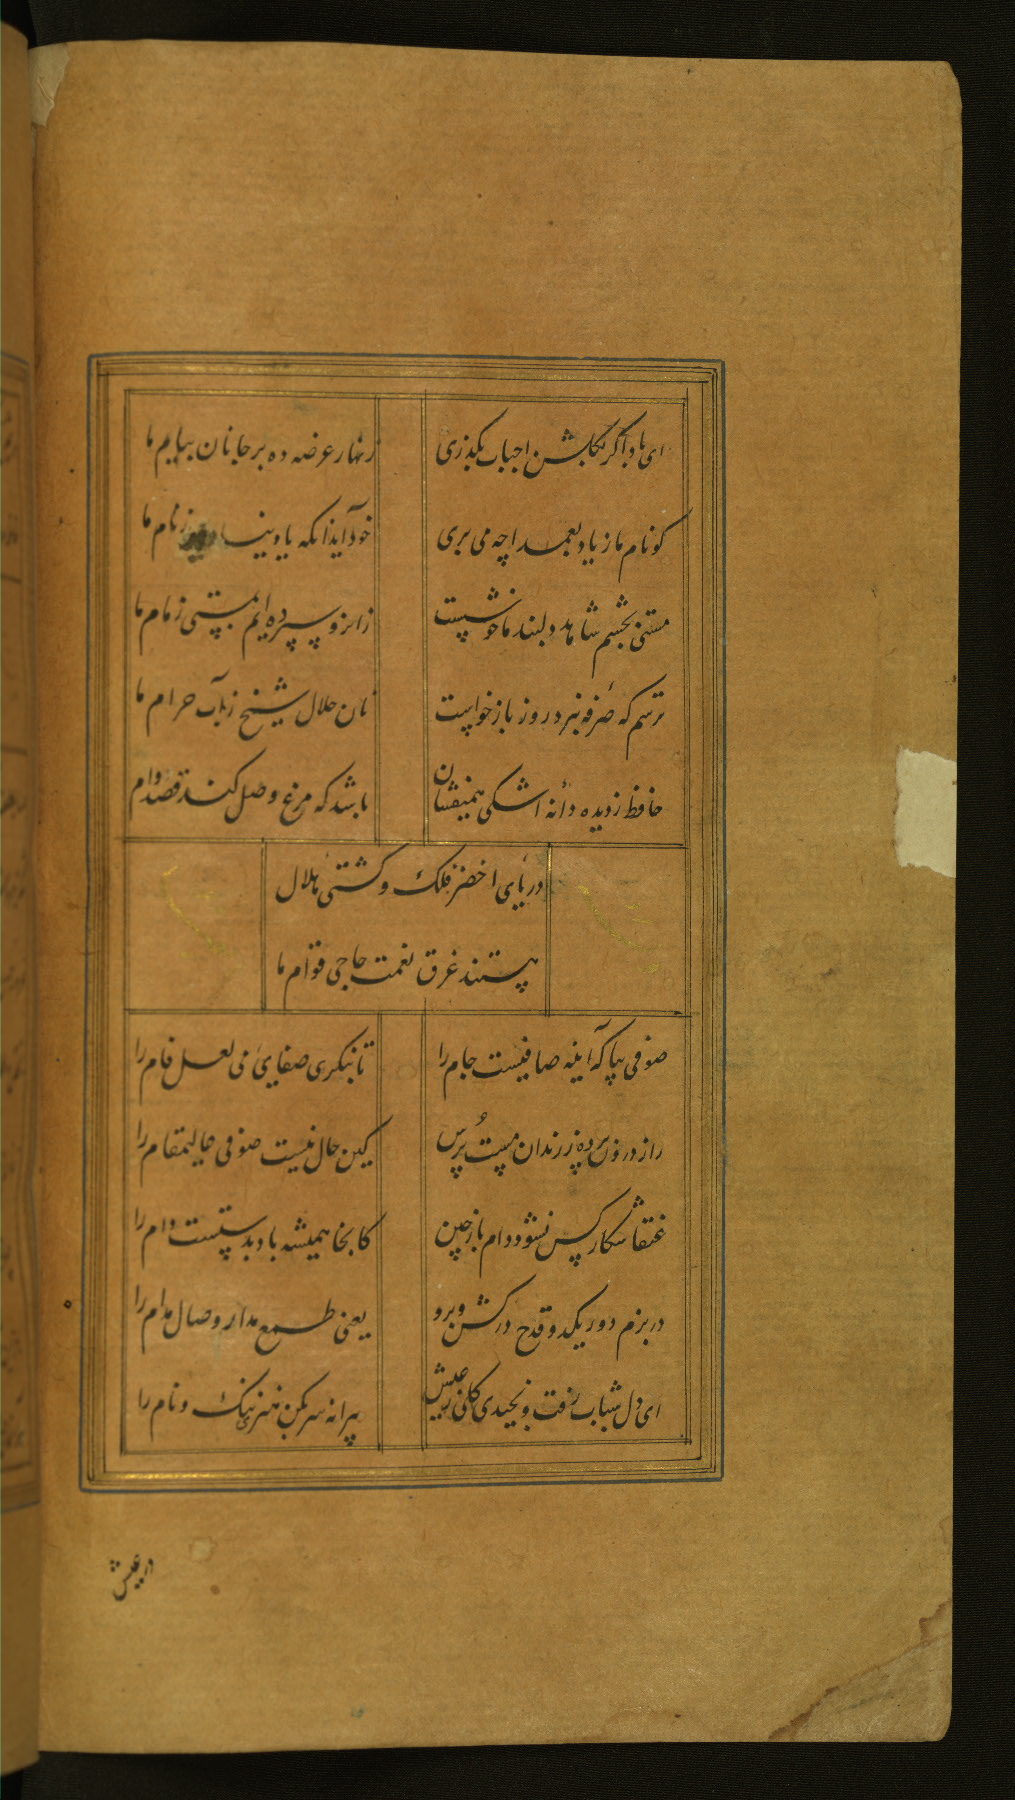 ای باد اگر بگلشن احباب بگذری زنهار عرضه ده بر جانان پیام ما
کو نام ما ز یاد بعمدا چه می بری خود آید آنکه یاد نیاید ز نام ما
مستی بچشم شاهد دلبند ما خوشست زانرو سپرده ایم بمستی زمام ما
ترسم که صرفه نبرد روز بازخواست نان حلال شیخ ز آب حرام ما
حافظ ز دیده دانه اشکی همیفشان باشد که مرغ وصل کند قصد دام
دریای اخضر فلک و کشتی هلال
هستند غرق نعمت حاجی قوام ما
صوفی بیا که آینه صافیست جام را تا بنگری صفای می لعل فام را
راز درون پرده ز رندان مست پرس کین حال نیست صوفی عالیمقام را
عنقا شکار کس نشود دام باز چین کانجا همیشه باد بدستست دام را
در بزم دور یکدو قدح درکش و برو یعنی طمع مدار وصال مدام را
ای دل شباب رفت و نچیدی گلی ز عیش پیرانه سر مکن هنری ننگ و نام را
در عیش